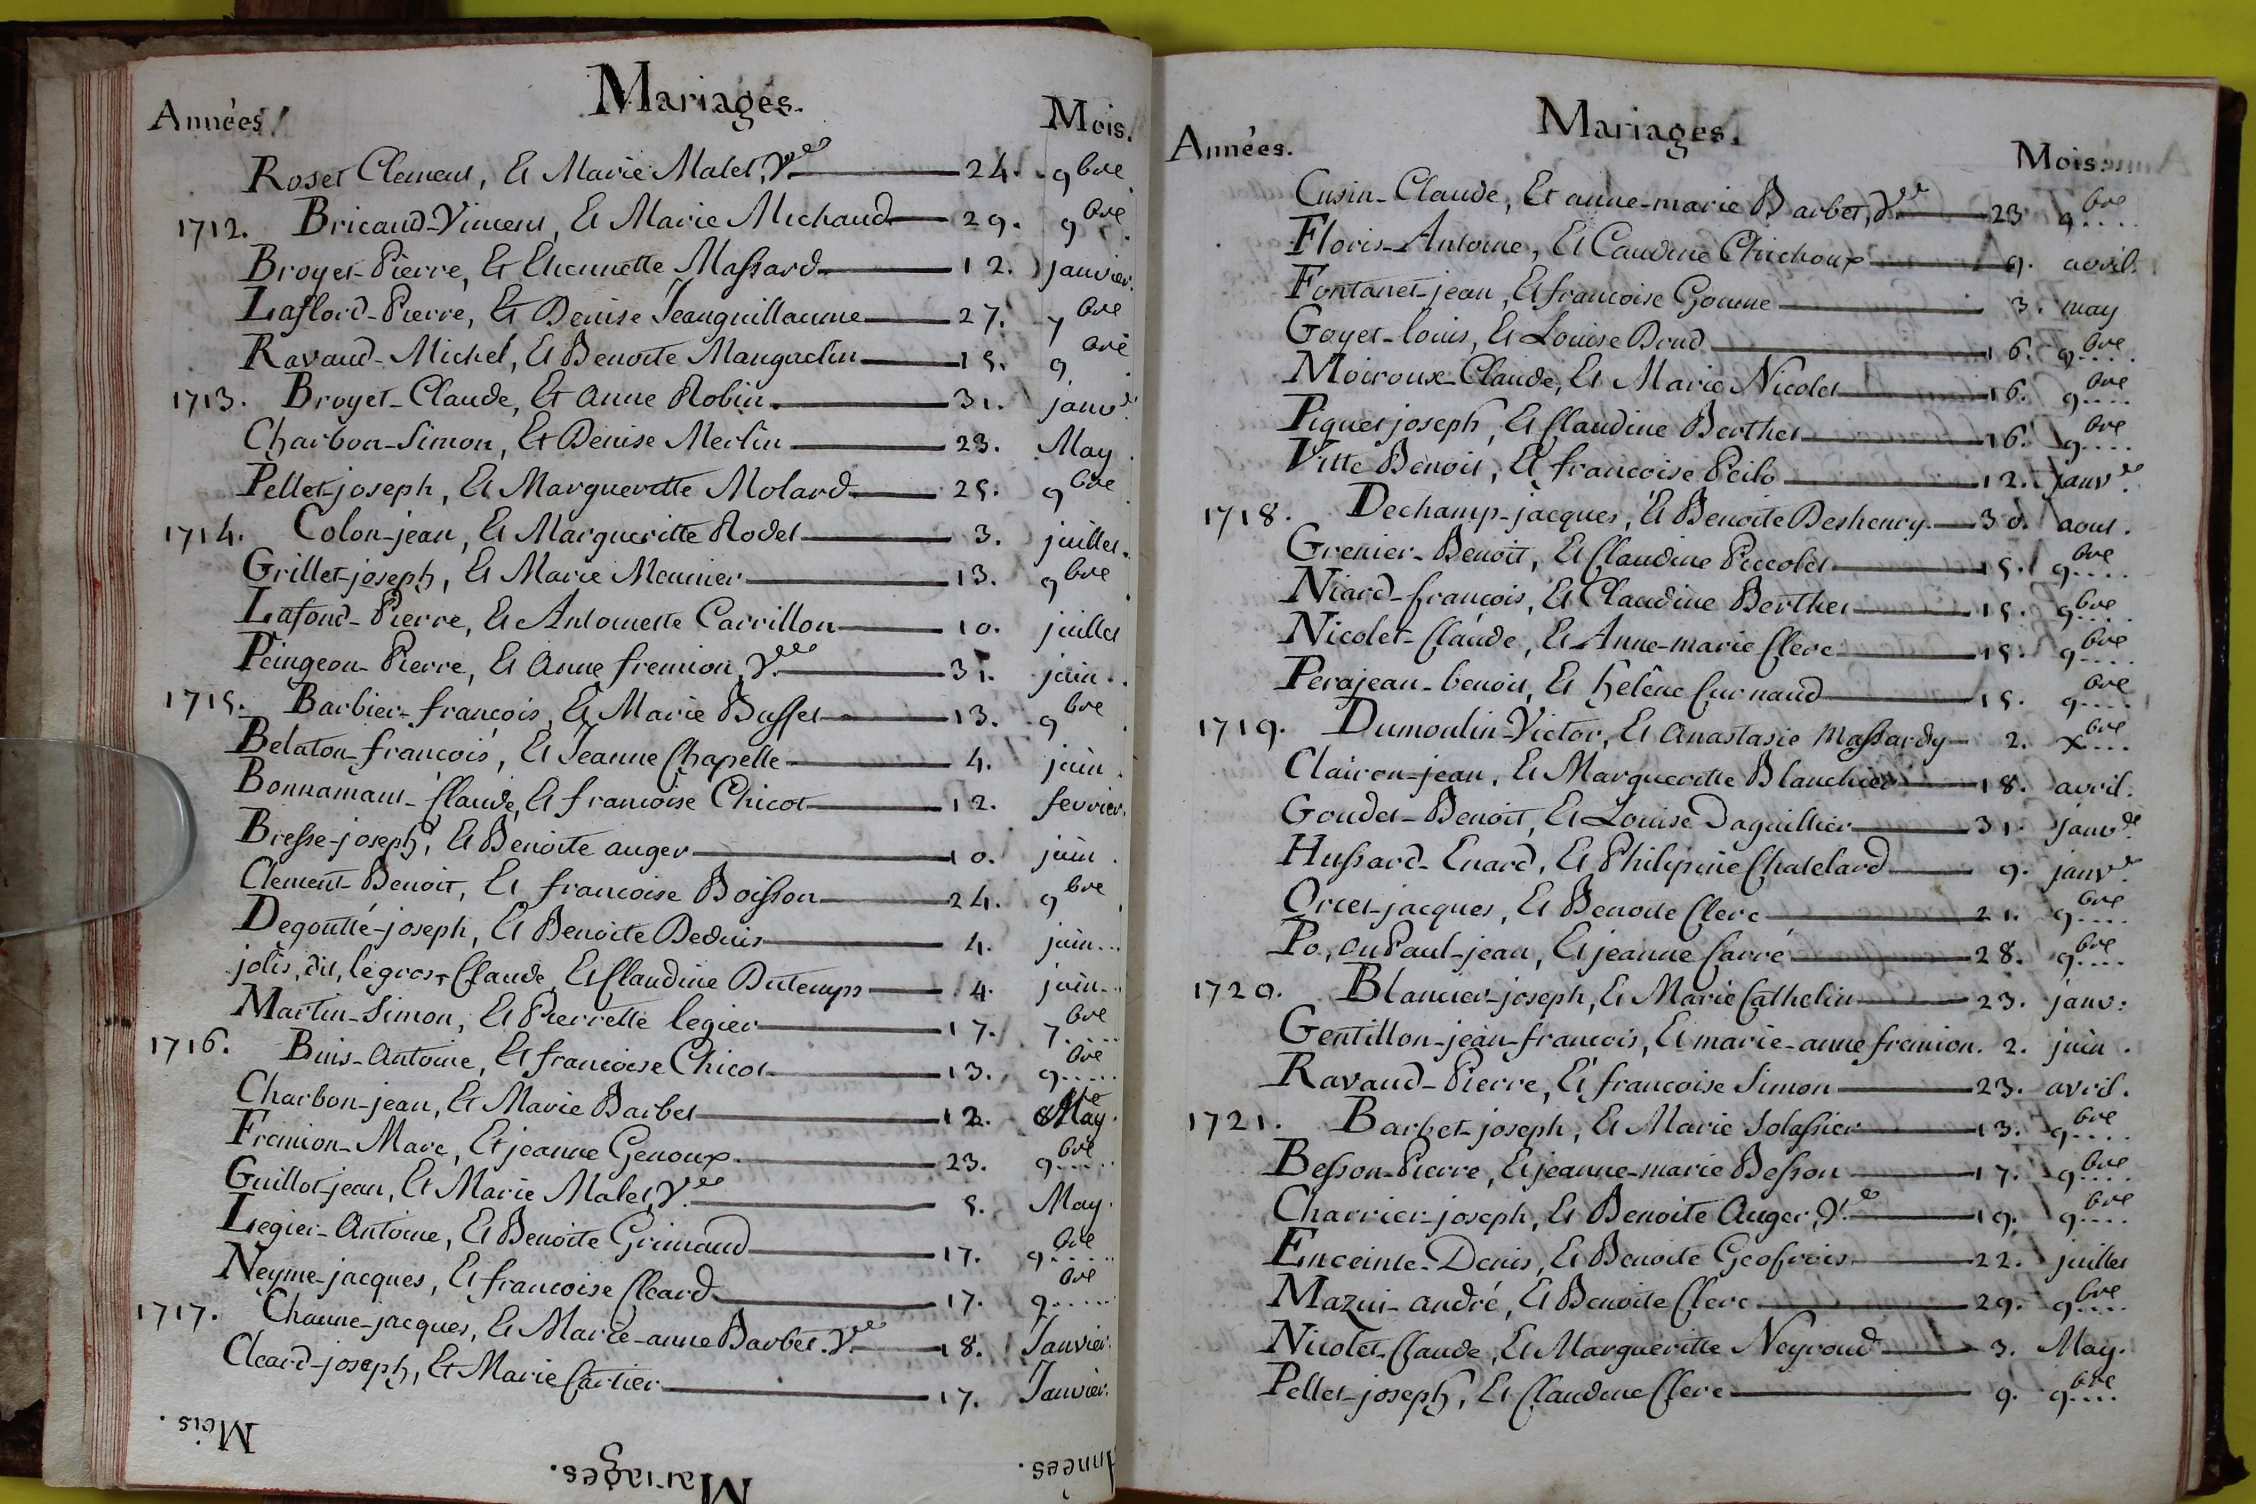 Mariages.
Années. Mois.
Roset Clement, Et Marie Malet, Vee 24. 9bre
1712. Bricaud-Vincent, Et Marie Michaud 29. 9bre
Broyet-Pierre, Et Etiennette Massard 12. janvier.
Laflord-Pierre, Et Denise Jeanguillaume 27. 7bre
Ravaud-Michel, Et Benoite Mangaclin 15. 9bre
1713. Broyet-Claude, Et anne Robin. 31. janvr
Charbon-Simon, Et Denise Merlin 23. May
Pellet-joseph, Et Margueritte Molard 25. 9bre
1714. Colon-jean, Et Margueritte Rodet 3. juillet.
Grillet-joseph, Et Marie Meunier 13. 9bre
Lafond-Pierre, Et Antoinette Carrillon 10. juillet
Peingeon-Pierre, Et anne fremion, Vee 31. juin.
1715. Barbier-françois, Et Marie Buffet 13. 9bre
Belaton-françois, Et Jeanne Chapelle 4. juin.
Bonnamant-Claude, Et francoise Chicot 12. fevrier.
Bresse-joseph, Et Benoite auger 10. juin.
Clement-Benoit, Et francoise Boisson 24. 9bre
Degoutté-joseph, Et Benoite Deduis 4. juin...
jolis, dit, legros, Claude, Et Claudine Dutemps 4. juin...
Martin-Simon, Et Pierrette legier 17. 7bre
1716. Buis-Antoine, Et francoise Chicot 13. 9bre
Charbon-jean, Et Marie Barbet 12. May.
Fremion-Marc, Et jeanne Genoux. 23. 9bre
Guillot-jean, Et Marie Malet, Vee 5. May.
Legier-Antoine, Et Benoite Grimaud 17. 9bre
Neyme-jacques, Et francoise Cleard 17. 9bre
1717. Channe-jacques, Et Marie-anne Barbet. Vee 18. Janvier.
Cleard-joseph, Et Marie Cartier 17. Janvier.
Mois.
Mariages.
Années.
Mariages.
Années. Mois.
Cusin-Claude, Et anne-marie Barbet, Vee 23 9bre
Floris-Antoine, Et Caudine Chichoux 9. avril.
Fontanet-jean, Et francoise Gonne 3. may
Goyet-louis, Et Louise Boud 16. 9bre
Moiroux-Claude, Et Marie Nicolet 16. 9bre
Piquet joseph, Et Claudine Berthet 16. 9bre
Vitte Benoit, Et francoise Peilo 12. Janvr
1718. Dechamp-jacques, Et Benoite Deshenry. 30. aout.
Grenier-Benoit, Et Claudine Piccolet 15. 9bre
Niard-françois, Et Claudine Berthet 15. 9bre
Nicolet-Claude, Et Anne-marie Clerc 15. 9bre
Perajean-benoit, Et helêne Curnaud 15. 9bre
1719. Dumoulin-Victor, Et anastasie Massardy 2. xbre
Clairon-jean, Et Margueritte Blanchier 18. avril.
Goudet-Benoit, Et Louise Daguillier 31. janvr
Hussard-Enard, Et Philipine Chatelard 9. janvr
Orcet-jacques, Et Benoite Clerc 21. 9bre
Po, ou Paul-jean, Et jeanne Carré 28. 9bre
1720. Blancier-joseph, Et Marie Cathelin 23. janv:
Gentillon-jean-francois, Et marie-anne fremion. 2. juin.
Ravaud-Pierre, Et francoise Simon 23. avril.
1721. Barbet-joseph, Et Marie Solassier 13. 9bre
Besson-Pierre, Et jeanne-marie Besson 17. 9bre
Charrier-joseph, Et Benoite Auger, Ve 19. 9bre
Enceinte-Denis, Et Benoite Geofrois 22. juillet
Mazui-andré, Et Benoite Clerc 29. 9bre
Nicolet-Claude, Et Margueritte Neyroud 3. May.
Pellet-joseph, Et Claudine Clerc 9. 9bre